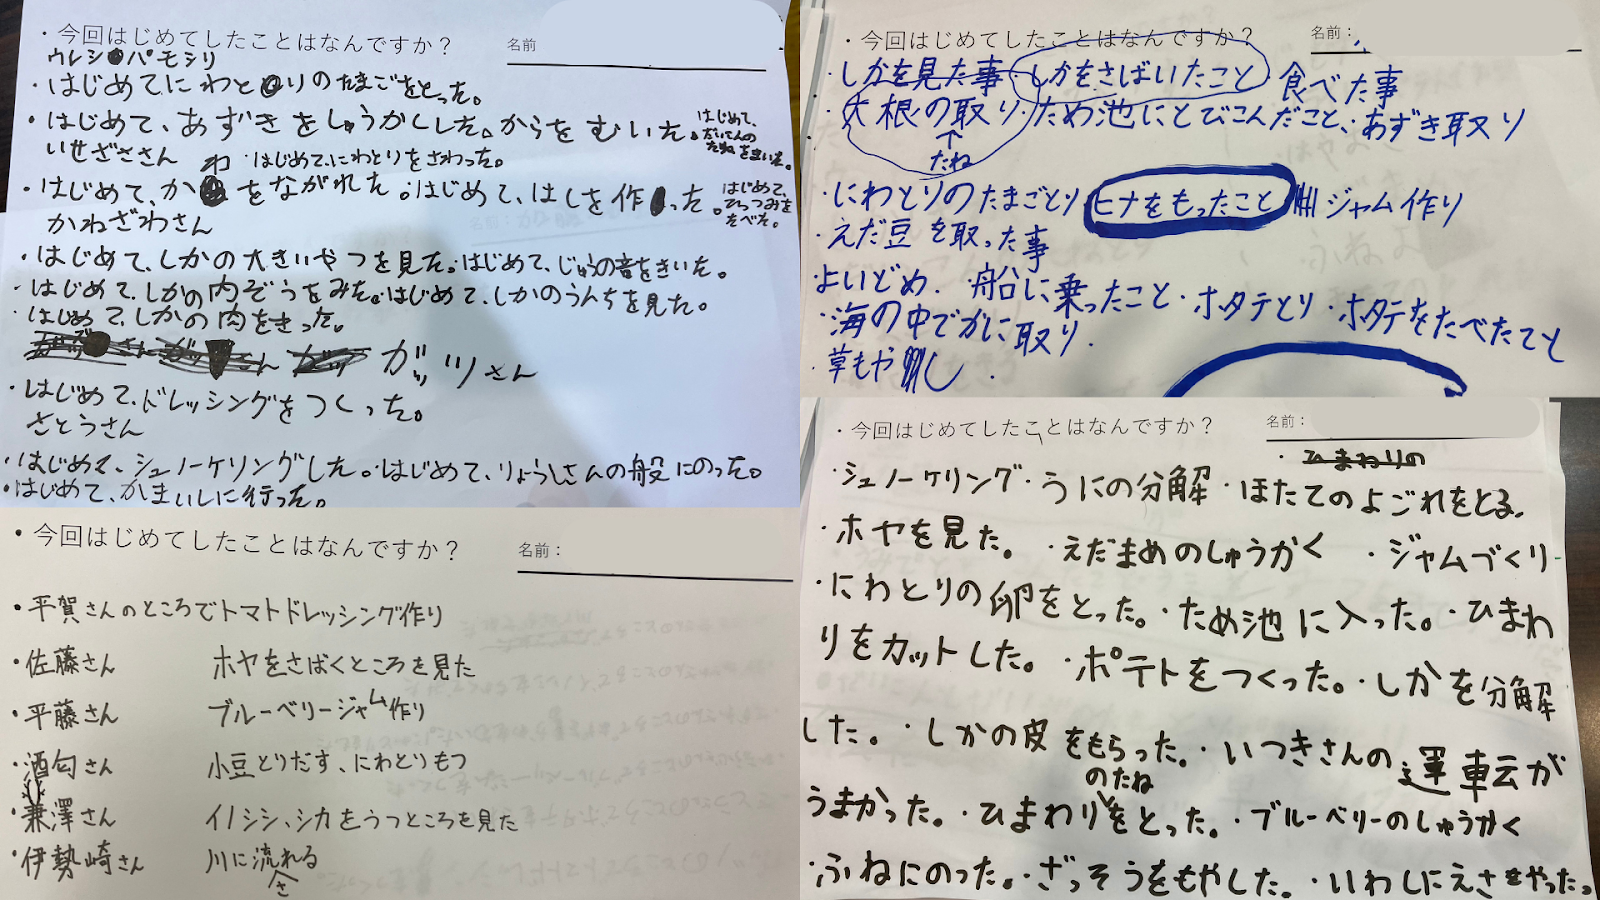 ・今回はじめてしたことはなんですか？
名前
ウレシパモシリ
・はじめてにわとりのたまごをとった。
・はじめて、あずきをしゅうかくした。からをむいた。
はじめて、だいこんのたねをまいた。
いせざきさん
・はじめて、にわとりをさわった。
・はじめて、かわをながれた。はじめて、はしを作った。
はじめて、ひっつみをたべた。
かねざわさん
・はじめて、しかの大きいやつを見た。はじめて、じゅうの音をきいた。
・はじめて、しかの内ぞうをみた。はじめて、しかのうんちを見た。
・はじめて、しかの肉をきった。
ガッツさん
・はじめて、ドレッシングをつくった。
さとうさん
・はじめて、シュノーケリングした。はじめて、りょうしさんの船にのった。
・はじめて、かまいしに行った。
・今回はじめてしたことはなんですか？
名前：
・しかを見た事・しかをさばいたこと・食べた事
・大根の取り・ため池にとびこんだこと、・あずき取り
たね
・にわとりのたまごとり ヒナをもったこと ジャム作り
・えだ豆を取った事
よいどめ ・船に乗ったこと・ホタテとり・ホタテをたべたてと
・海の中でかに取り
・草もやし
・今回はじめてしたことはなんですか？
名前：
・平賀さんのところでトマトドレッシング作り
・佐藤さん ホヤをさばくところを見た
・平藤さん ブルーベリージャム作り
・酒匂さん 小豆とりだす、にわとりもつ
・兼澤さん イノシシ、シカをうつところを見た
・伊勢崎さん 川に流れる
さ
・今回はじめてしたことはなんですか？
名前：
・ひまわりの
・シュノーケリング・うにの分解・ほたてのよごれをとる。
・ホヤを見た。・えだまめのしゅうかく ・ジャムづくり
・にわとりの卵をとった。・ため池に入った。・ひまわ
りをカットした。・ポテトをつくった。・しかを分解
した。・しかの皮をもらった。・いつきさんの運転が
のたね
うまかった。・ひまわりをとった。・ブルーベリーのしゅうかく
・ふねにのった。・ざっそうをもやした。・いわしにえさをやった。